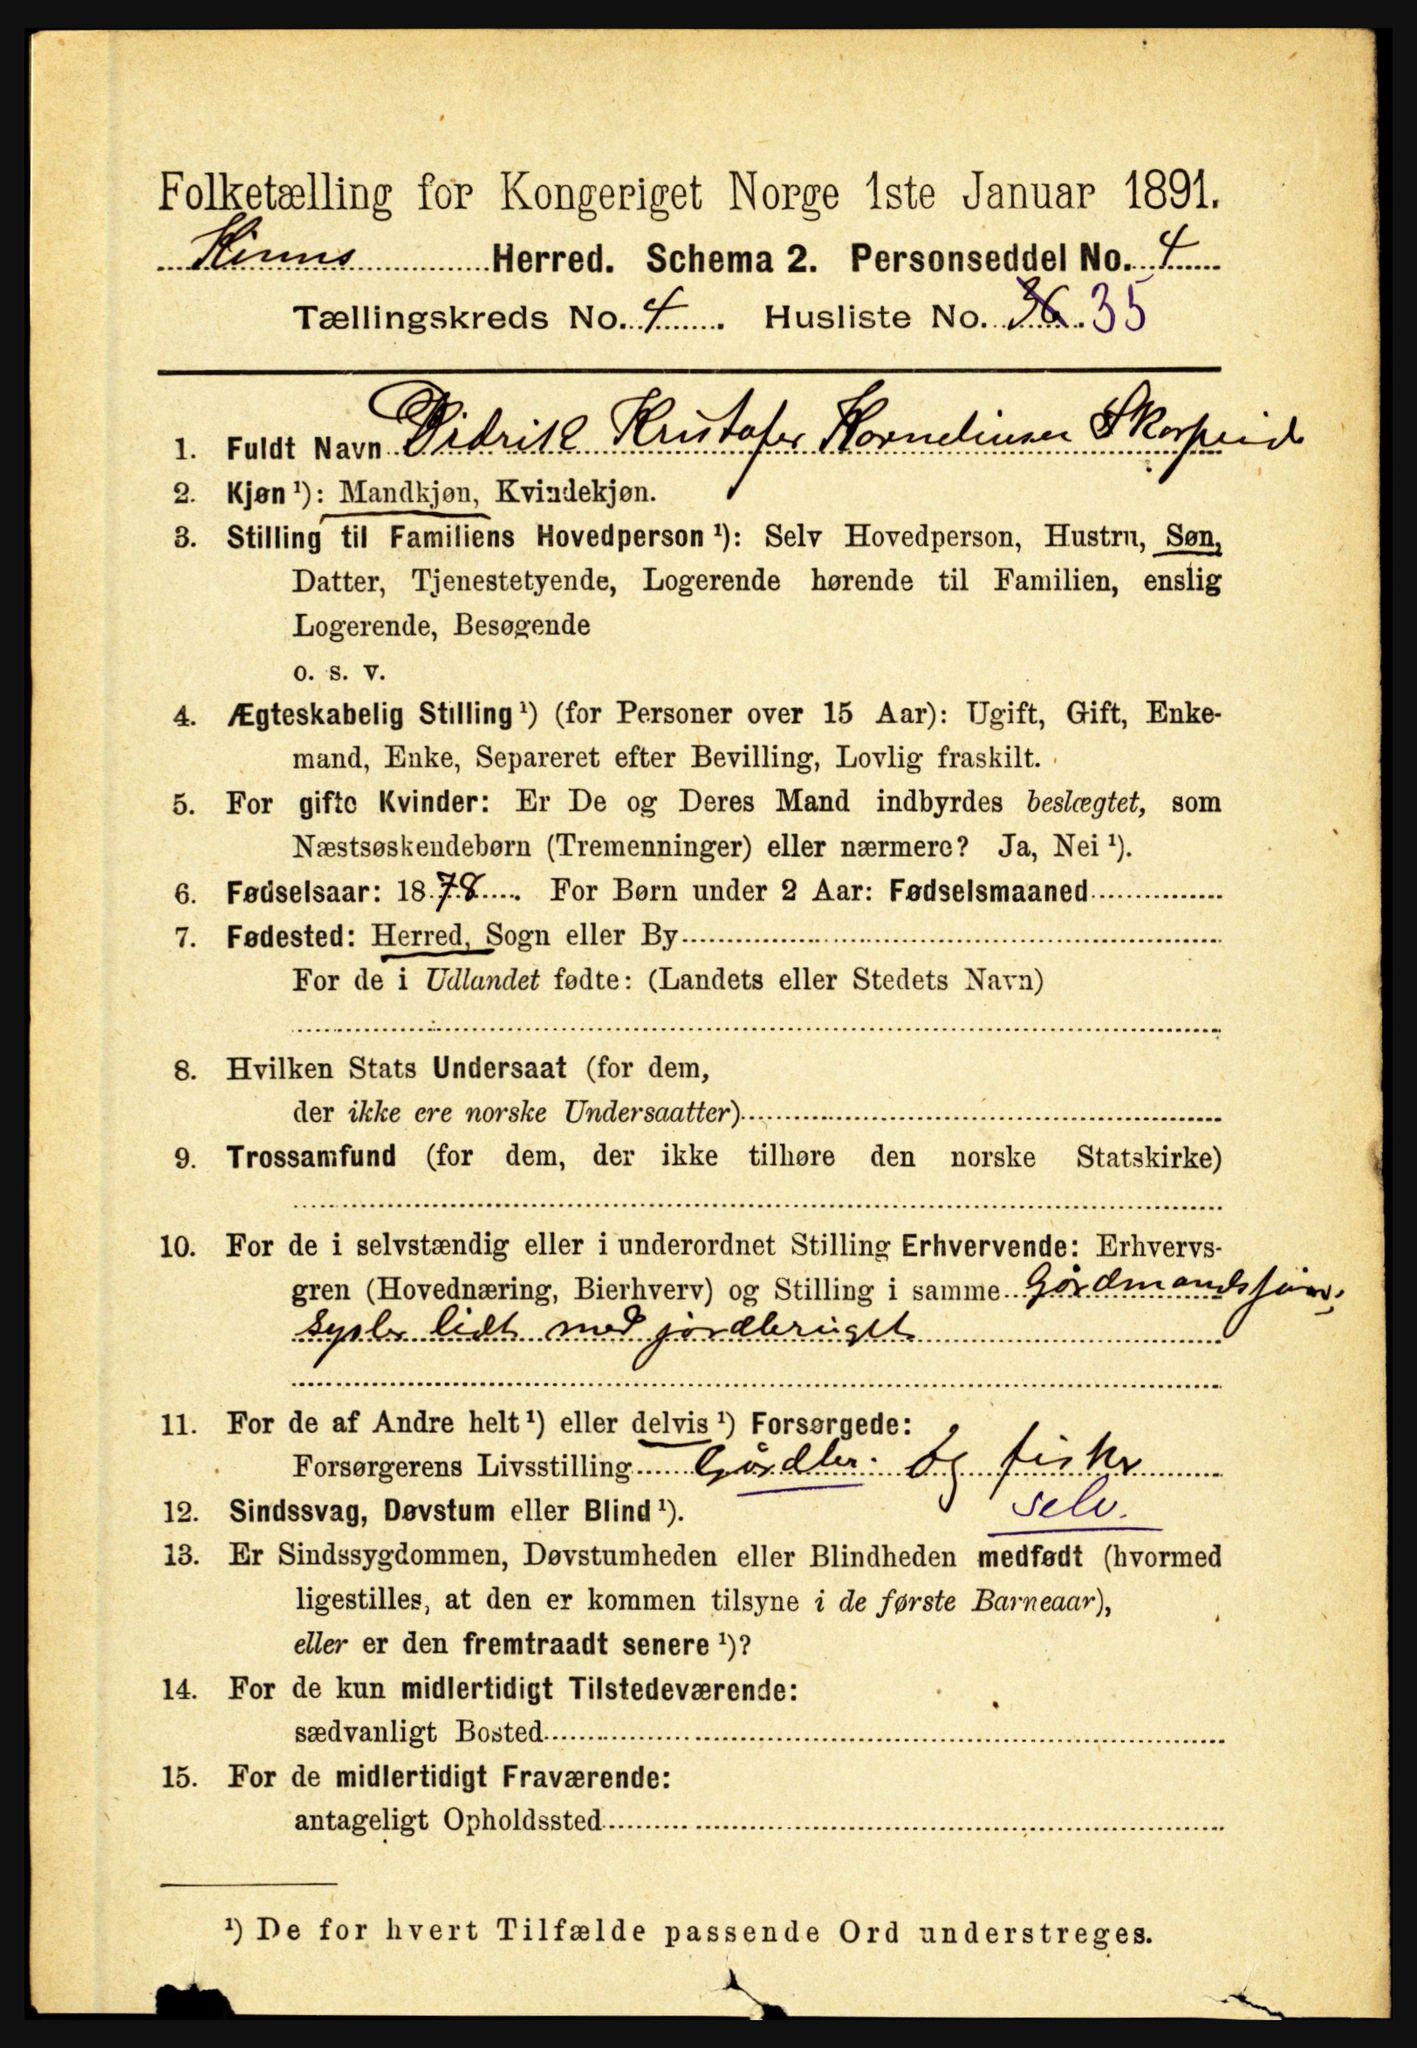 Folketælling for Kongeriget Norge 1ste Januar 1891.
Kinns Herred. Schema 2. Personseddel No. 4
Tællingskreds No. 4. Husliste No. 36. 35
1. Fuldt Navn Didrik Kristofer Korneliusen Skorpeid
2. Kjøn ¹): Mandkjøn, Kvindekjøn.
3. Stilling til Familiens Hovedperson ¹): Selv Hovedperson, Hustru, Søn,
Datter, Tjenestetyende, Logerende hørende til Familien, enslig
Logerende, Besøgende
o. s. v.
4. Ægteskabelig Stilling ¹) (for Personer over 15 Aar): Ugift, Gift, Enke-
mand, Enke, Separeret efter Bevilling, Lovlig fraskilt.
5. For gifte Kvinder: Er De og Deres Mand indbyrdes beslægtet, som
Næstsøskendebørn (Tremenninger) eller nærmere? Ja, Nei ¹).
6. Fødselsaar: 1878. For Børn under 2 Aar: Fødselsmaaned
7. Fødested: Herred, Sogn eller By
For de i Udlandet fødte: (Landets eller Stedets Navn)
8. Hvilken Stats Undersaat (for dem,
der ikke ere norske Undersaatter)
9. Trossamfund (for dem, der ikke tilhøre den norske Statskirke)
10. For de i selvstændig eller i underordnet Stilling Erhvervende: Erhvervs-
gren (Hovednæring, Bierhverv) og Stilling i samme Gårdmandssøn,
sysler lidt med jordbruget
11. For de af Andre helt ¹) eller delvis ¹) Forsørgede:
Forsørgerens Livsstilling Gårdbr. og fisker
selv.
12. Sindssvag, Døvstum eller Blind ¹).
13. Er Sindssygdommen, Døvstumheden eller Blindheden medfødt (hvormed
ligestilles, at den er kommen tilsyne i de første Barneaar),
eller er den fremtraadt senere ¹)?
14. For de kun midlertidigt Tilstedeværende:
sædvanligt Bosted
15. For de midlertidigt Fraværende:
antageligt Opholdssted
¹) De for hvert Tilfælde passende Ord understreges.